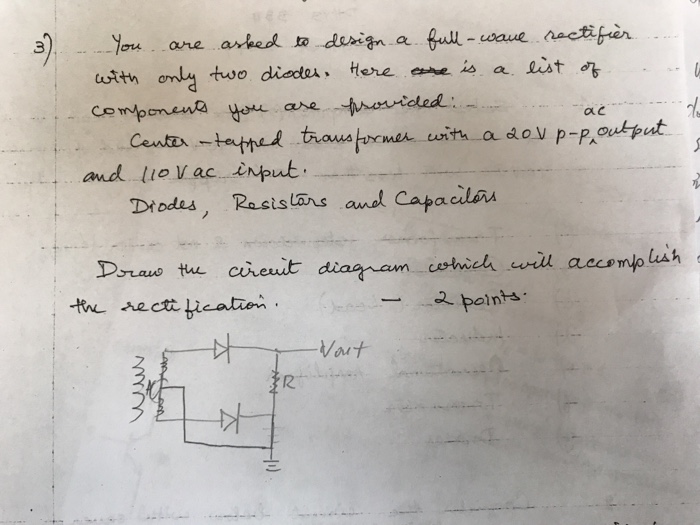 3) You are asked to design a full-wave rectifier
with only two diodes. Here is a list of
components you are provided:
ac
Center-tapped transformer with a 20V p-p output
and 110V ac input.
Diodes, Resistors and Capacitors
Draw the circuit diagram which will accomplish
the rectification. — 2 points.
Vout
R